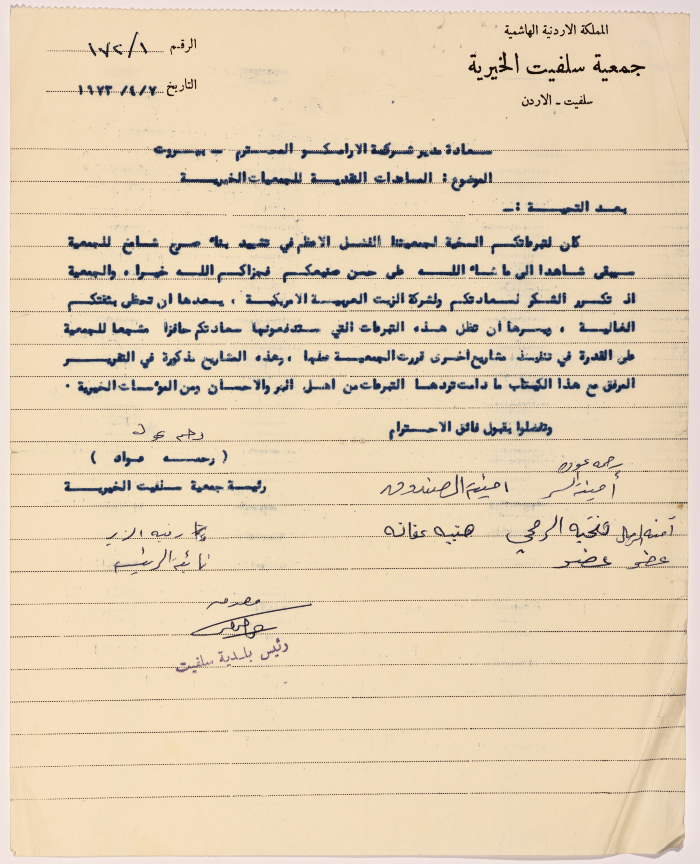 المملكة الاردنية الهاشمية
جمعية سلفيت الخيرية
سلفيت ـ الاردن
الرقم ١٧٢/١
التاريخ ١٩٧٣/٤/٧
سعادة مدير شركة الارامكو المحترم ـ بيروت
الموضوع : المساعدات النقدية للجمعيات الخيرية
بعد التحية :ـ
كان لتبرعاتكم السخية لجمعيتنا الفضل الاعظم في تشييد بناء صرح شامخ للجمعية
سيبقى شاهدا الى ما شاء الله على حسن صنيعكم فجزاكم الله خيرا ، والجمعية
اذ تكرر الشكر لسعادتكم ولشركة الزيت العربية الامريكية ، يسعدها ان تحظى بثقتكم
الغالية ، ويسرها ان تظل هذه التبرعات التي ستدفعونها سعادتكم حافزا مشجعا للجمعية
على القدرة في تنفيذ مشاريع اخرى قررت الجمعية عملها ، وهذه المشاريع مذكورة في التقرير
المرفق مع هذا الكتاب ما دامت تردها التبرعات من اهل البر والاحسان ومن المؤسسات الخيرية ٠
وتفضلوا بقبول فائق الاحترام
( رحمه عواد )
رئيسة جمعية سلفيت الخيرية
أمينة السر
امينة الصندوق
آمنه
عضو
فتحيه الرمحي
عضو
هنيه عفانه
نائبة الرئيسة
رئيس بلدية سلفيت